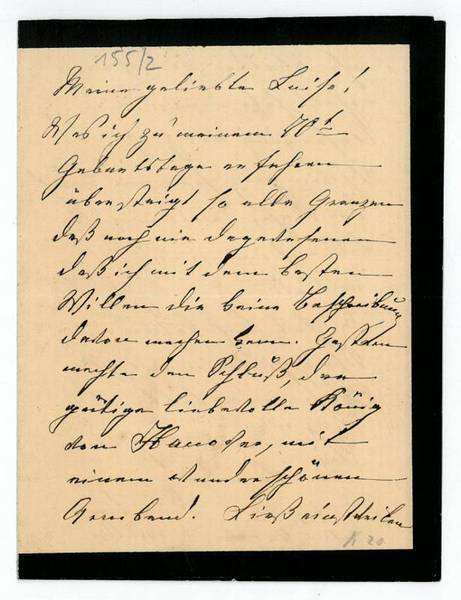 155/2
Meine geliebte Luise!
Was ich zu meinem 70t
Geburtstage erfahren
übersteigt so alle Grenzen
daß noch nie dagewesenen
daß ich mit dem besten
Willen dir keine Beschreibung
davon machen kann. Gestern
machte den Schluß, der
gütige liebevolle König
von Hanover, mit
einem wunderschönen
Armband. Ließ einstweilen
K 20